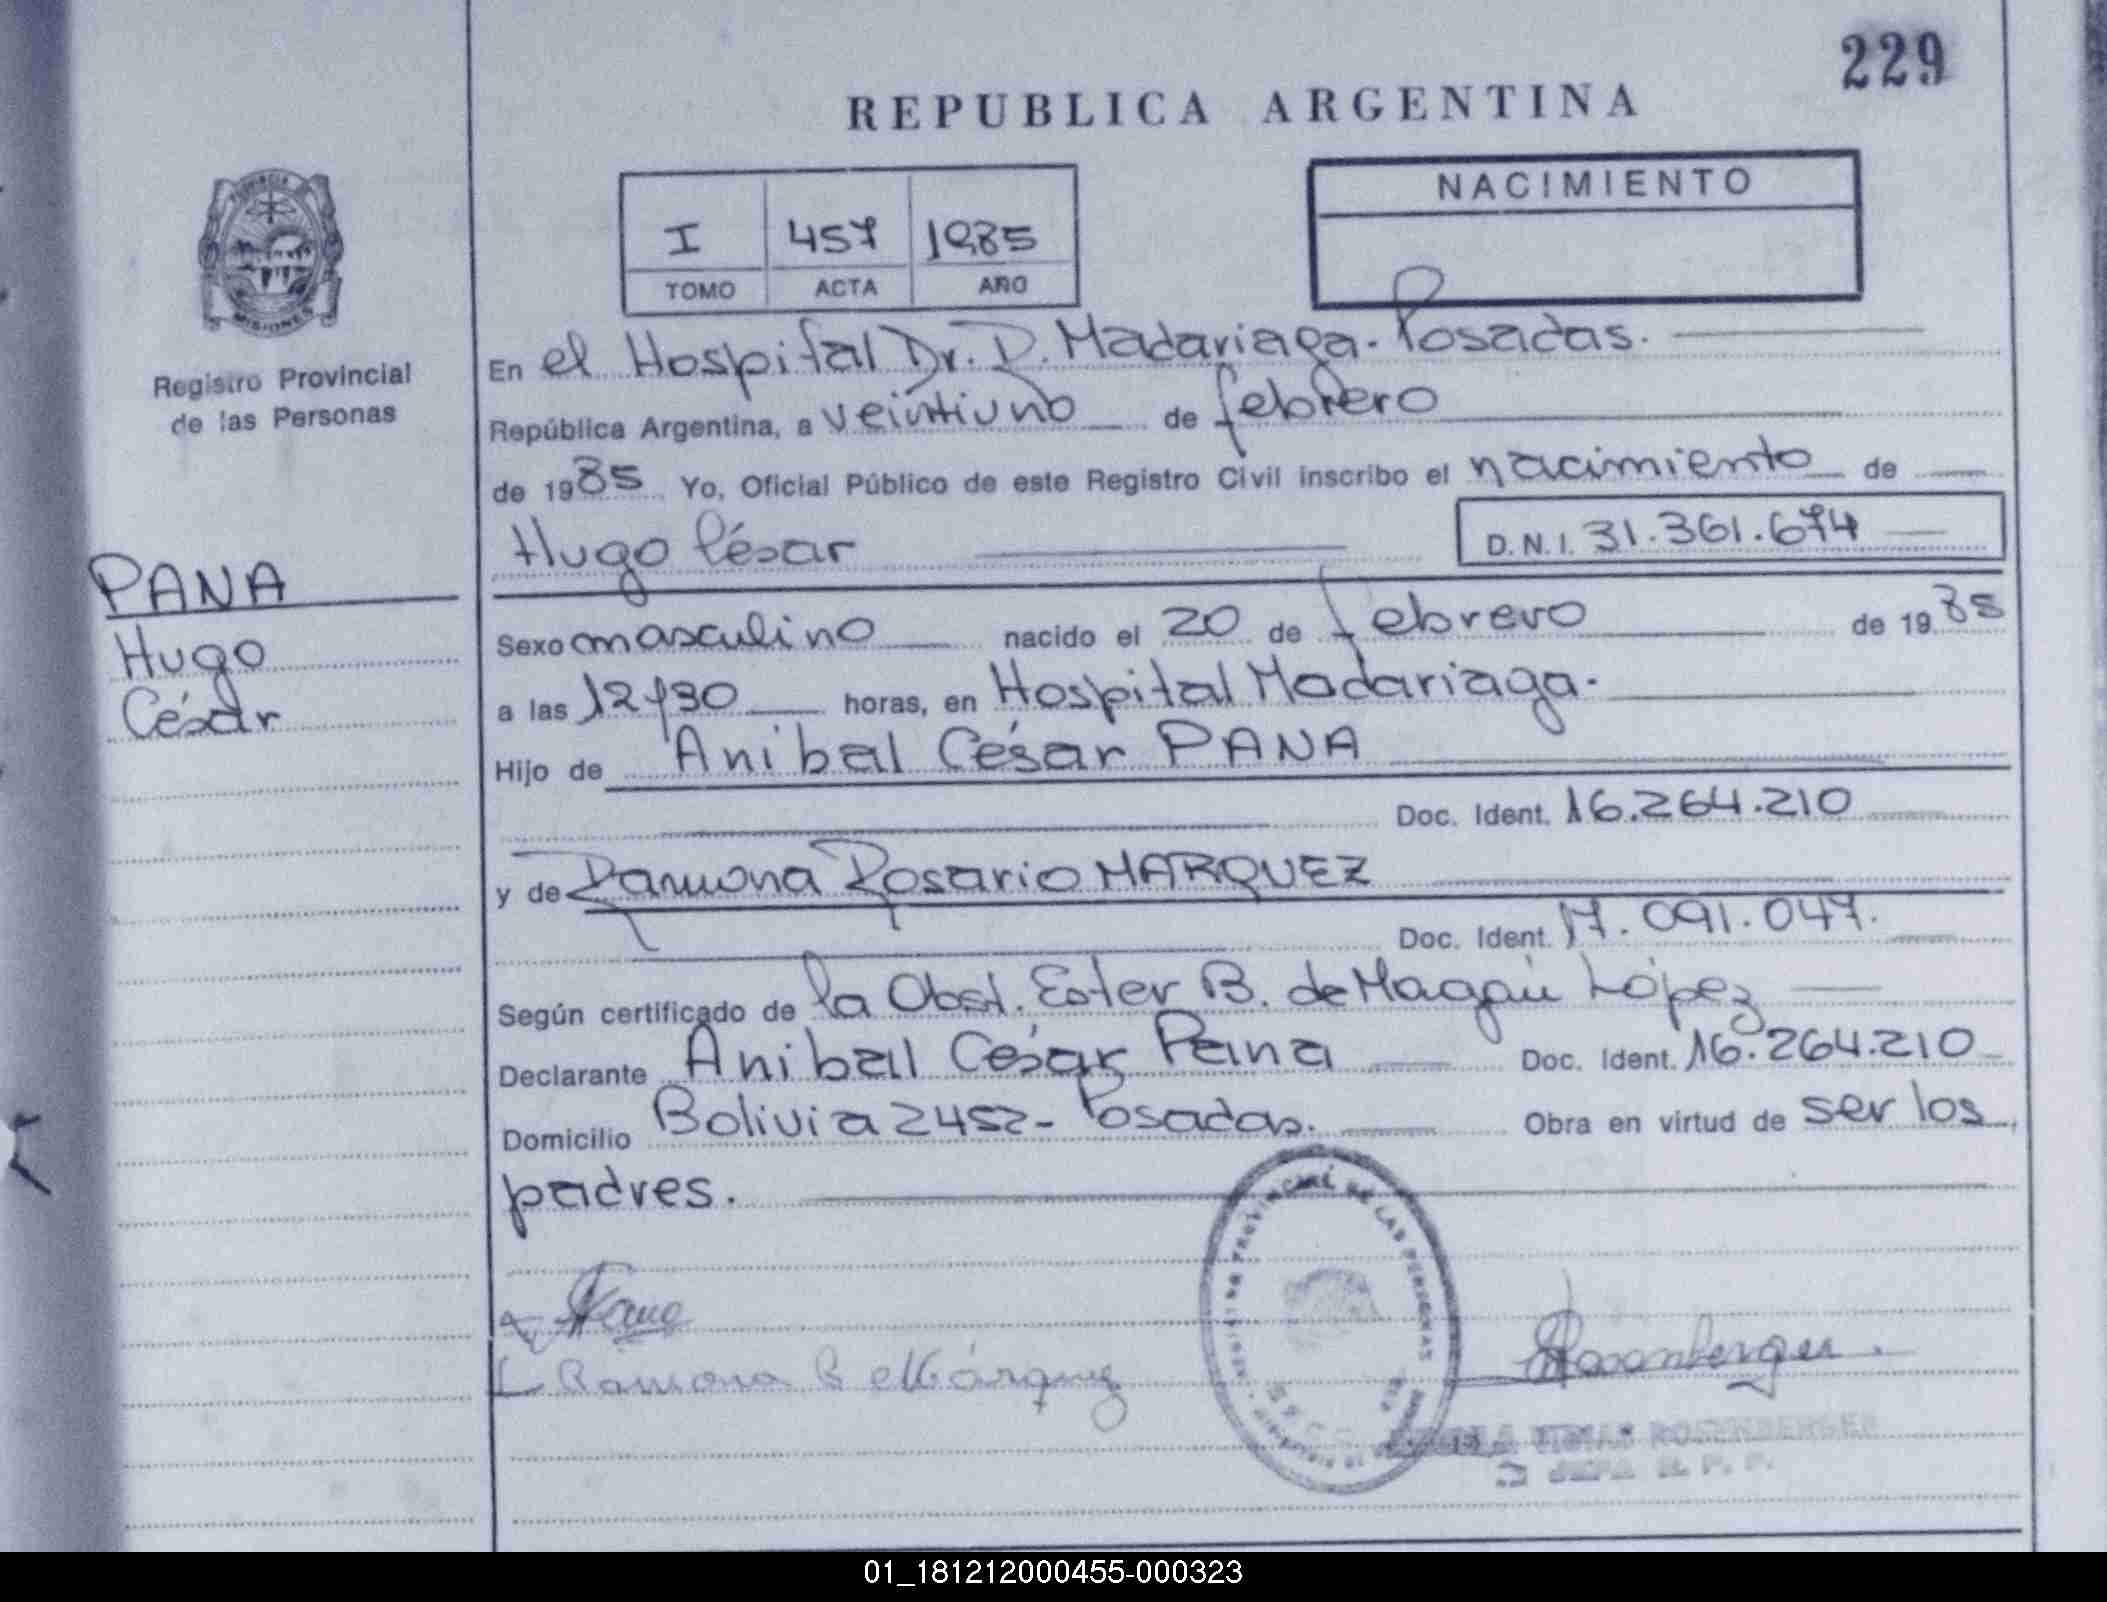 229
REPUBLICA ARGENTINA
NACIMIENTO
I 457 1985
TOMO ACTA AÑO
PROVINCIA DE
MISIONES
Registro Provincial
de las Personas
PANA
Hugo
César
En el Hospital Dr. R. Madariaga. Posadas.
República Argentina, a veintiuno de febrero
de 1985 Yo, Oficial Público de este Registro Civil inscribo el nacimiento de
Hugo César D.N.I. 31.361.674
Sexo masculino nacido el 20 de febrero de 1985
a las 12y30 horas, en Hospital Madariaga.
Hijo de Anibal César PANA
Doc. Ident. 16.264.210
y de Ramona Rosario MARQUEZ
Doc. Ident. 17.091.047.
Según certificado de la Obst. Ester B. de López
Declarante Anibal César Pana Doc. Ident. 16.264.210
Domicilio Bolivia 2452- Posadas. Obra en virtud de ser los
padres.
Ramona R Márquez
PROVINCIAL DE LAS PERSONAS
Rosenberger
ROSENBERGER
JEFA R. P. P.
01_181212000455-000323